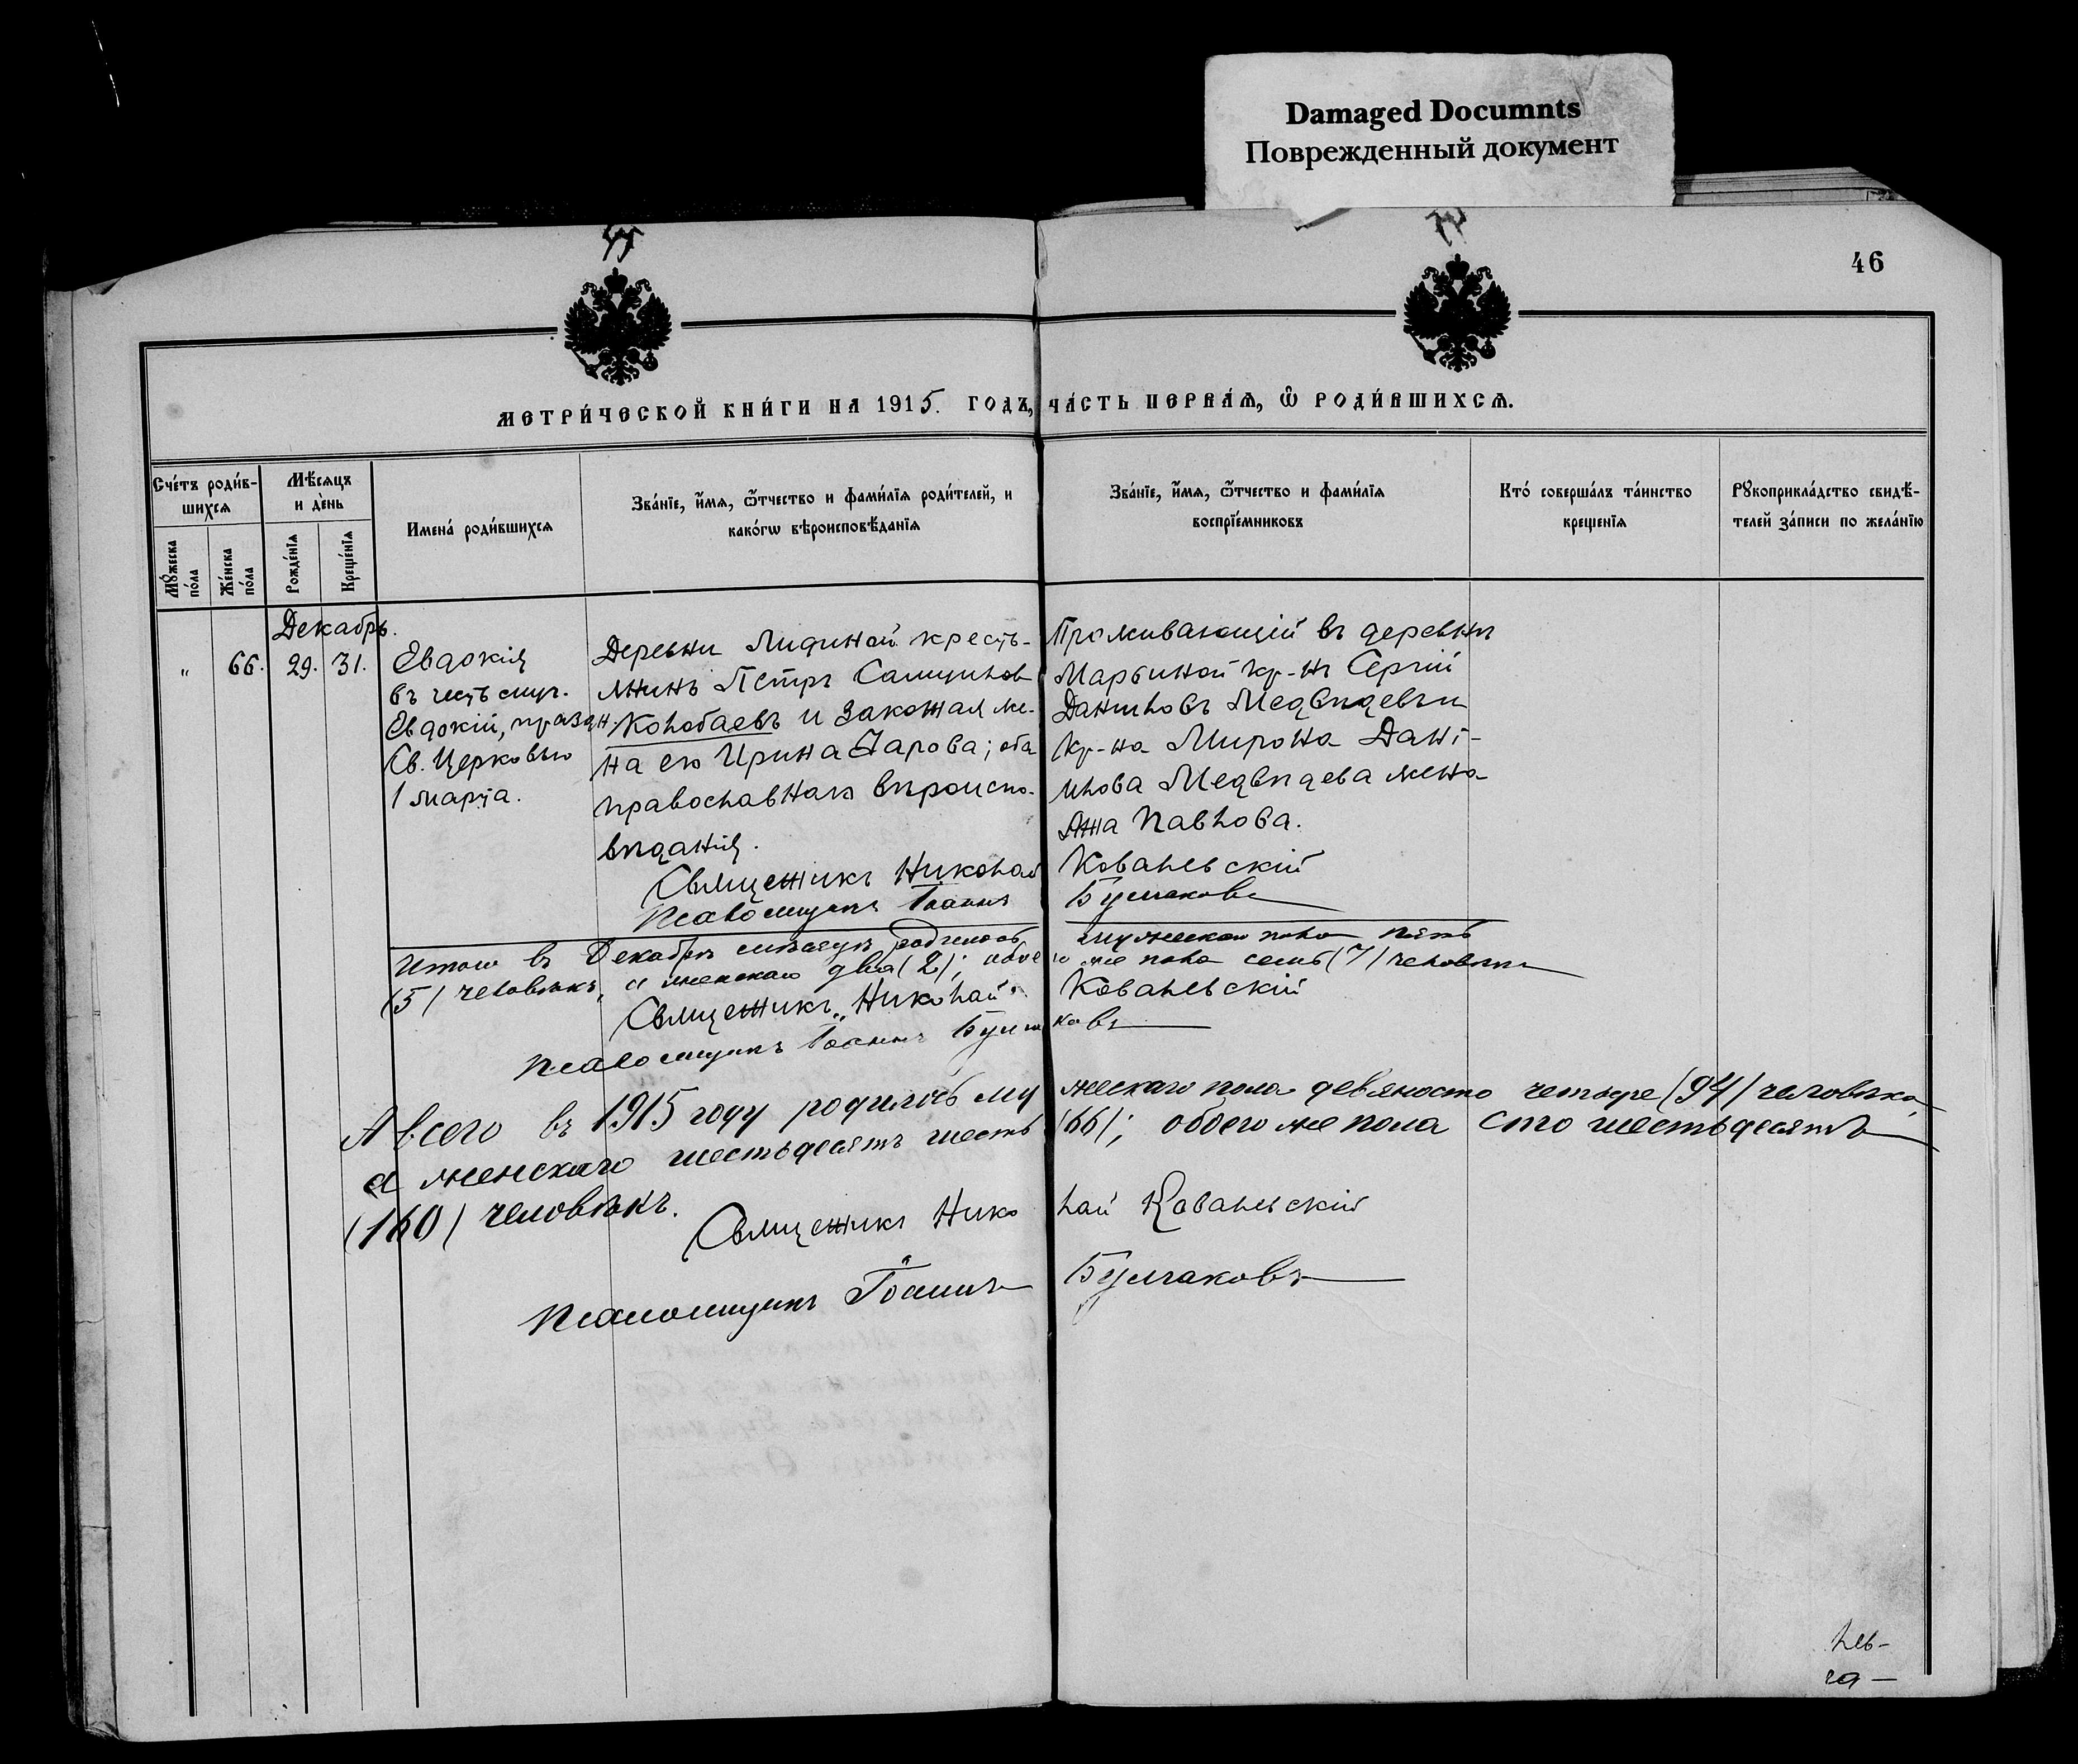 Damaged Documnts
Поврежденный документ
46
МЕТРИ́ЧЕСКОЙ КНИ́ГИ НА 1915. ГОДЪ, ЧА́СТЬ ПЕРВА́Ѧ, Ѽ РОДИ́ВШИХСѦ.
Сче́тъ роди́в-
шихсѧ
Мѣ́сѧцъ
и де́нь
Мꙋ́жеска
по́ла
Же́нска
по́ла
Рожде́нїѧ
Креще́нїѧ
Имена́ роди́вшихсѧ
Зва́нїе, и́мѧ, ѻ҆́тчество и фами́лїѧ роди́телей, и
како́гѡ вѣроисповѣ́данїѧ
Зва́нїе, и́мѧ, ѻ҆́тчество и фами́лїѧ
воспрїе́мниковъ
Кто́ соверша́лъ та́инство
креще́нїѧ
Рꙋкоприкла́дство свидѣ́-
телей за́писи по жела́нїю
Декабрь.
" 66. 29. 31.
Евдокія
въ честь смуч.
Евдокіи, празд н.
Св. Церковью
1 марта.
Деревни Лидиной кресть-
янинъ Петръ
Колобаевъ и законная же-
на его Ирина ; оба
православнаго вѣроиспо-
вѣданія.
Проживающій въ деревнѣ
Марьиной кр-нъ Сергій
Даниловъ Медвѣдевъ и
кр-на Мирона Дані-
илова Медвѣдева жена
Анна Павлова.
Священникъ Николай Ковалевскій
Псаломщикъ Іоаннъ Булгаковъ
Итого въ Декабрѣ мѣсяцѣ родилось мужескаго пола пять
(5) человѣкъ, а женскаго два (2); обое го же пола семь (7) человѣкъ
Священникъ Николай Ковалевскій
Псаломщикъ Іоаннъ Булгаковъ
А всего въ 1915 году родилось му жескаго пола девяносто четыре (94) человѣка,
а женскаго шестьдесятъ шесть (66); обоего же пола сто шестьдесятъ
(160) человѣкъ.
Священникъ Нико лай Ковалевскій
Псаломщикъ Іоаннъ Булгаковъ